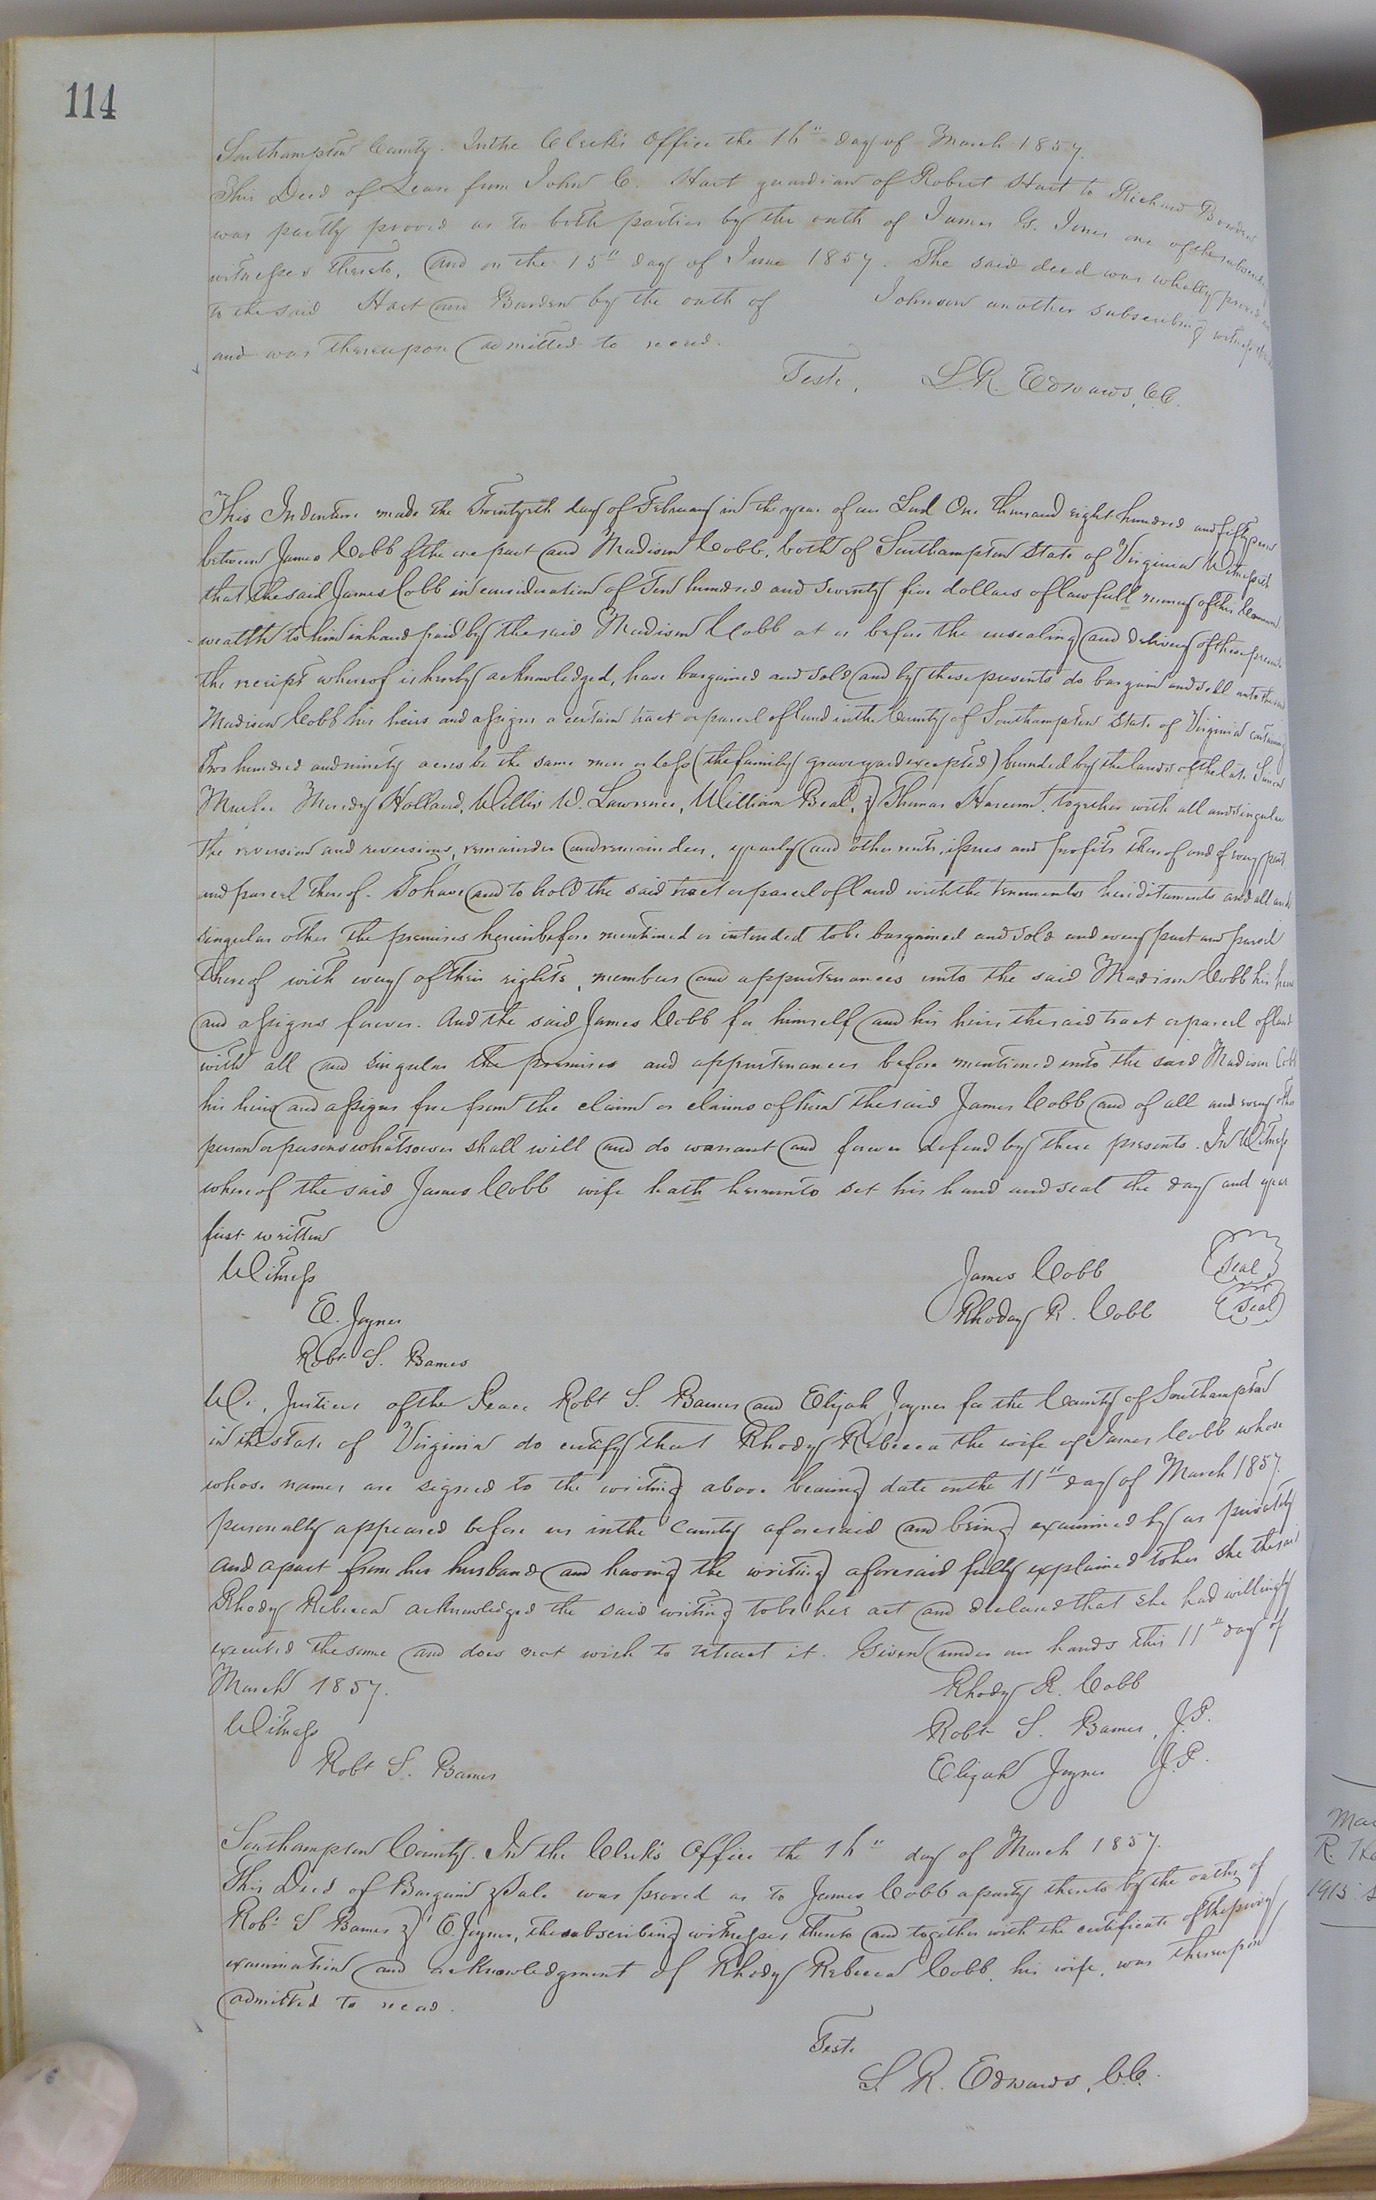 114
Southampton County. In the Clerk's Office the 16" day of March 1857.
This Deed of Lease from John C. Hart guardian of Robert Hart to Richard
was partly proved as to both parties by the oath of James G. Jones one of the
witnesses thereto, and on the 15" day of June 1857. The said deed was wholly
to the said Hart and Burden by the oath of Johnson another subscribing
and was thereupon admitted to record.
Teste, L.R. Edwards, C.C.
This Indenture made the Twentyeth day of February in the year of our Lord One thousand eight hundred and fifty
between James Cobb of the one part and Madison Cobb, both of Southampton State of Virginia Witnesseth
that the said James Cobb in consideration of Ten hundred and Seventy five dollars of lawfull money of this Common
wealth to him in hand paid by the said Madison Cobb at or before the ensealing and delivery of these presents
the receipt whereof is hereby acknowledged, have bargained and sold and by these presents do bargain and sell unto the said
Madison Cobb his heirs and assigns a certain tract or parcel of land in the County of Southampton State of Virginia containing
Two hundred and ninety acres be the same more or less (the family graveyard excepted) bounded by the lands of the late
Holland, Willis W. Lawrence, William Beal, & Thomas together with all and singular
the reversion and reversions, remainder and remainders, yearly and other rents, issues and profits thereof and of every part
and parcel thereof. To have and to hold the said tract or parcel of land with the tenements heriditaments and all and
singular other the premises hereinbefore mentioned or intended to be bargained and sold and every part and parcel
thereof with every of their rights, members and appurtenances unto the said Madison Cobb his heirs
and assigns forever. And the said James Cobb for himself and his heirs the said tract or parcel of land
with all and singular the premises and appurtenances before mentioned unto the said Madison Cobb
his heirs and assigns free from the claim or claims of him the said James Cobb and of all and every other
person or persons whatsoever shall will and do warrant and forever defend by these presents. In Witness
whereof the said James Cobb wife hath hereunto set his hand and seal the day and year
first written
Witness James Cobb (Seal)
E. Joyner Rhody R. Cobb (Seal)
Robt S. Barnes
We, Justices of the Peace Robt S. Barnes and Elijah Joyner for the County of Southampton
in the State of Virginia do certify that Rhody Rebecca the wife of James Cobb whose
whose names are signed to the writing above bearing date on the 11" day of March 1857.
personally appeared before us in the County aforesaid and being examined by us privately
and apart from her husband and having the writing aforesaid fully explained to her she the said
Rhody Rebecca acknowledged the said writing to be her act and declared that she had willingly
executed the same and does not wish to retract it. Given under our hands this 11" day of
March 1857. Rhody R. Cobb
Witness Robt S. Barnes, J.P.
Robt S. Barnes Elijah Joyner J.P.
Southampton County. In the Clerk's Office the 16" day of March 1857.
This Deed of Bargain & Sale was proved as to James Cobb a party thereto by the oaths of
Robt S Barnes & E. Joyner, the subscribing witnesses thereto and together with the certificate of the privy
examination and acknowledgment of Rhody Rebecca Cobb, his wife, was thereupon
admitted to record.
Teste
L. R. Edwards, C.C.
1915